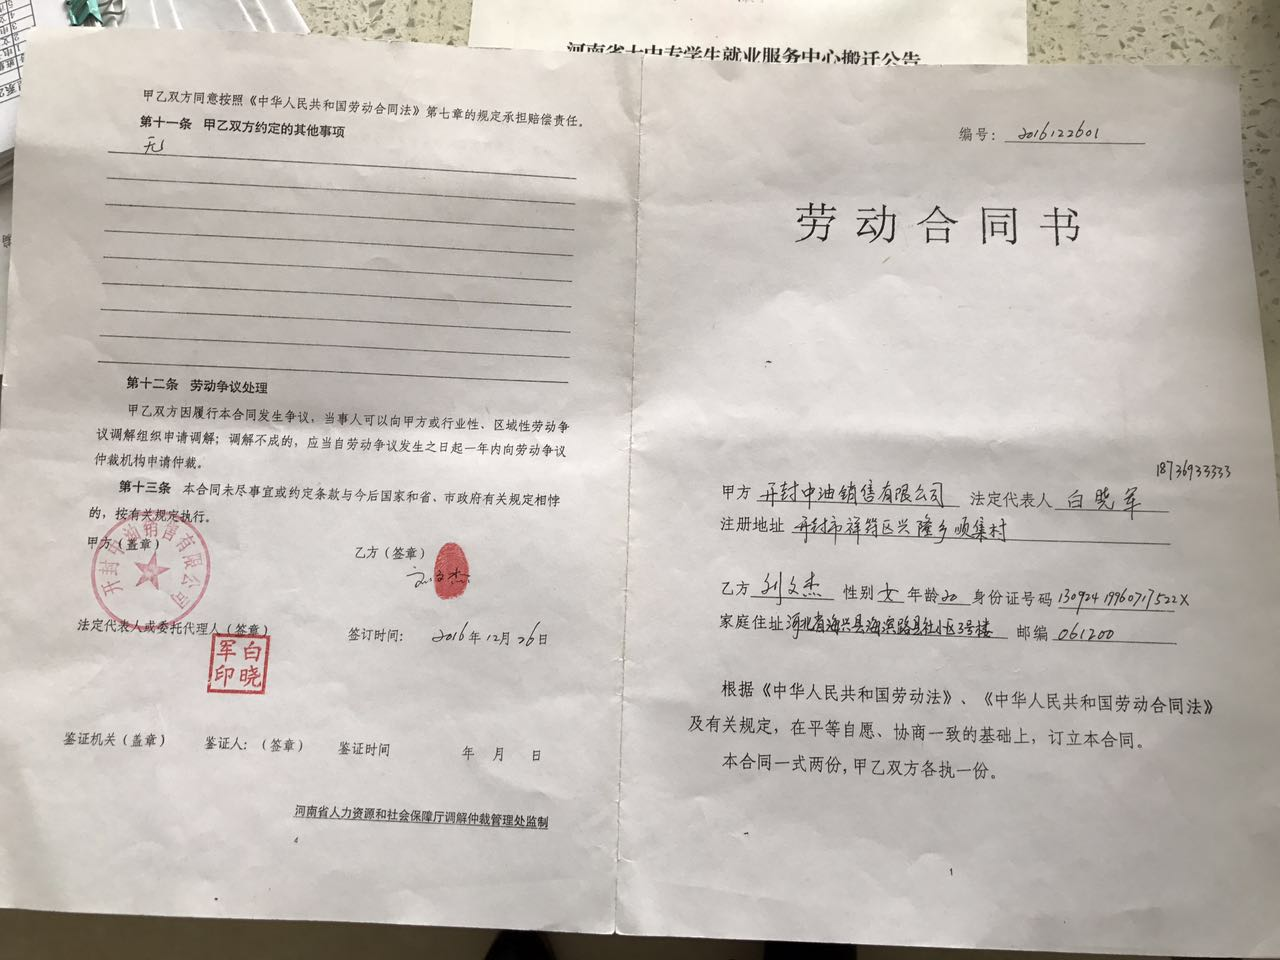 河南省大中专学生就业服务中心搬迁公告
甲乙双方同意按照《中华人民共和国劳动合同法》第七章的规定承担赔偿责任。
第十一条 甲乙双方约定的其他事项
无
第十二条 劳动争议处理
甲乙双方因履行本合同发生争议，当事人可以向甲方或行业性、区域性劳动争
议调解组织申请调解；调解不成的，应当自劳动争议发生之日起一年内向劳动争议
仲裁机构申请仲裁。
第十三条 本合同未尽事宜或约定条款与今后国家和省、市政府有关规定相悖
的，按有关规定执行。
甲方（盖章） 乙方（签章）
开封中油销售有限公司
刘文杰
法定代表人或委托代理人（签章） 签订时间： 2016年12月26日
军白
印晓
鉴证机关（盖章） 鉴证人：（签章） 鉴证时间 年 月 日
河南省人力资源和社会保障厅调解仲裁管理处监制
4
编号：2016122601
劳动合同书
18736933333
甲方 开封中油销售有限公司 法定代表人 白晓军
注册地址 开封市祥符区兴隆乡顺集村
乙方 刘文杰 性别 女 年龄 20 身份证号码 13092419960717522X
家庭住址 河北省海兴县海滨路县社小区3号楼 邮编 061200
根据《中华人民共和国劳动法》、《中华人民共和国劳动合同法》
及有关规定，在平等自愿、协商一致的基础上，订立本合同。
本合同一式两份，甲乙双方各执一份。
1